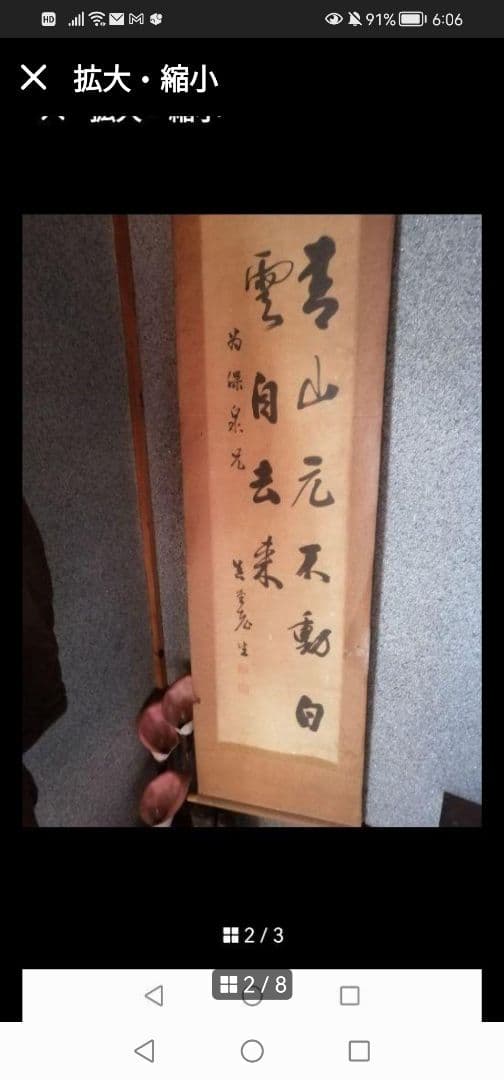 HD 91% 6:06
拡大・縮小
青山元不動白
雲自去来
為保泉兄
2 / 3
2 / 8